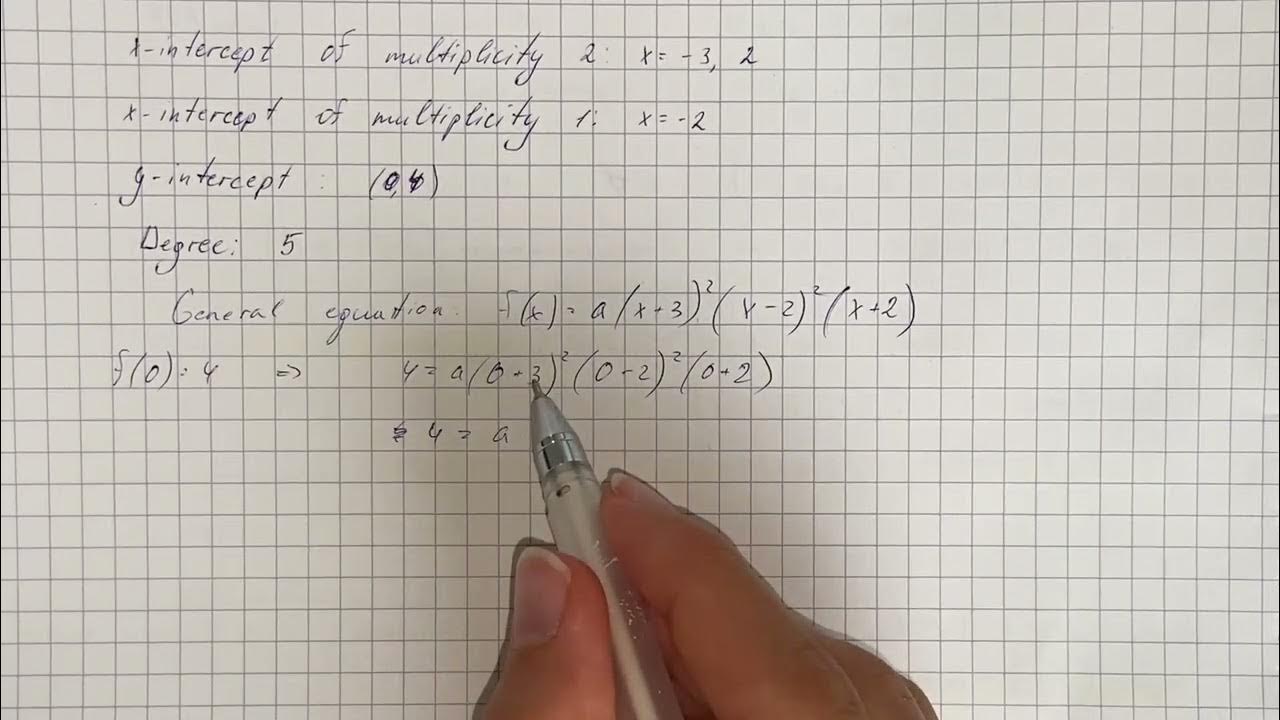 x-intercept of multiplicity 2: x = -3, 2
x-intercept of multiplicity 1: x = -2
y-intercept : (0,4)
Degree: 5
General equation: f(x) = a(x+3)²(x-2)²(x+2)
f(0) = 4 => 4 = a(0+3)²(0-2)²(0+2)
4 = a